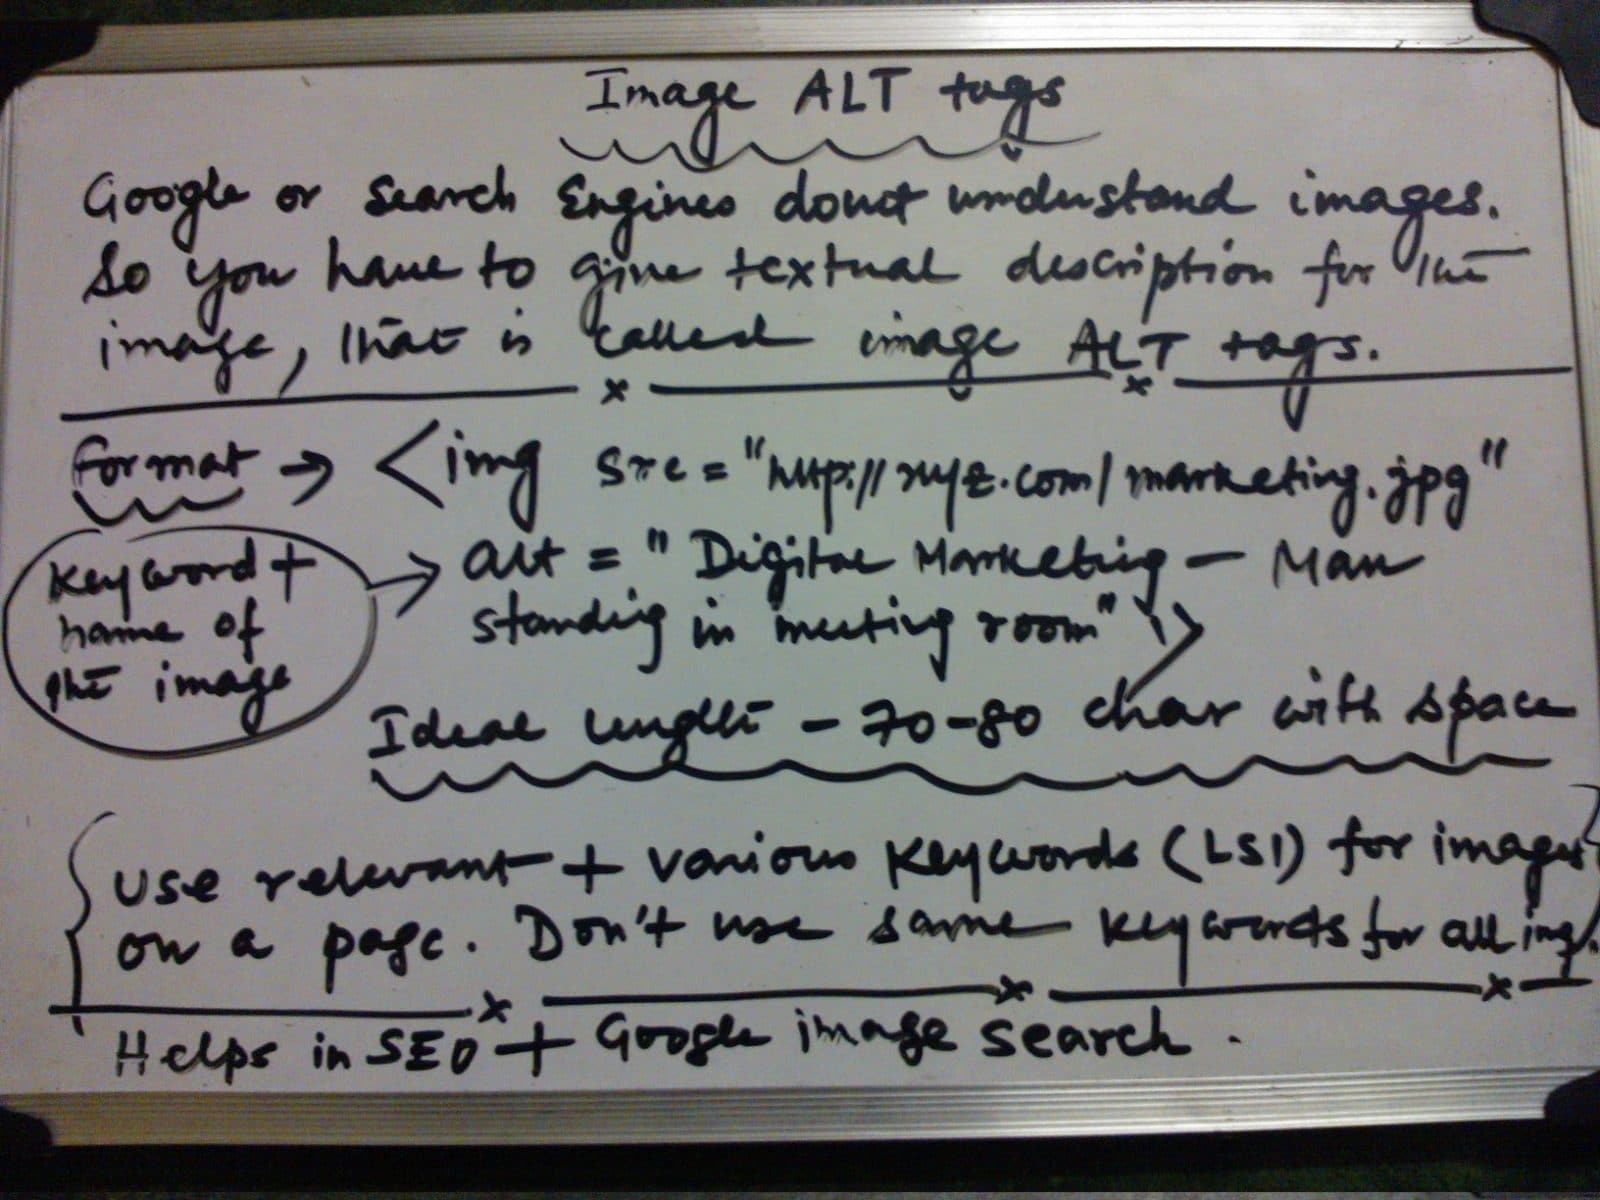 Image ALT tags
Google or Search Engines donot understand images.
So you have to give textual description for the
image, that is called image ALT tags.
Format → <img src = "http://xyz.com/marketing.jpg"
Keyword +
name of
the image
→ alt = " Digital Marketing - Man
standing in meeting room" \>
Ideal length - 70-80 char with space
Use relevant + various keywords (LSI) for images
on a page. Don't use same keywords for all img.
Helps in SEO + Google image search.